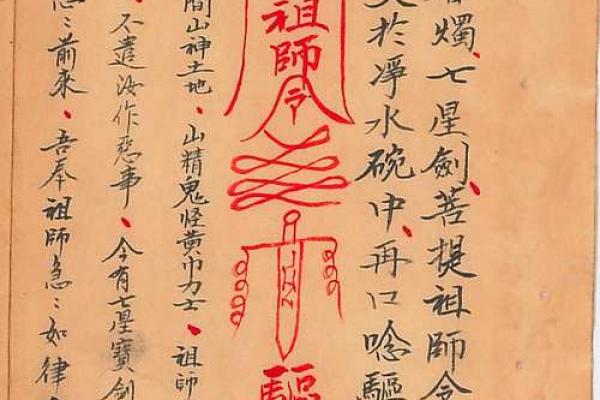 燭、七星劍、菩提祖師令
於凈水碗中、再口唸驅
祖師令
驅
山神土地、山精鬼怪黃巾力士、祖師
不遣汝作惡事、今有七星寶劍
：前來、吾奉祖師急：如律